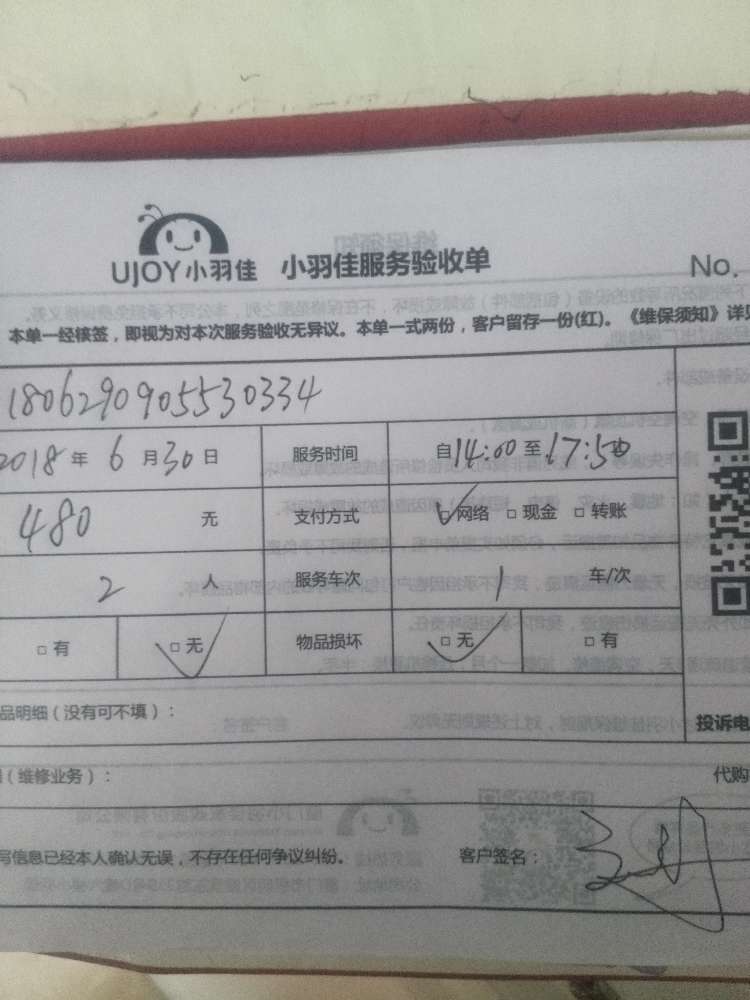 UJOY小羽佳 小羽佳服务验收单
No.
本单一经核签，即视为对本次服务验收无异议。本单一式两份，客户留存一份(红)。《维保须知》详见
1806290905530334
2018年6月30日 服务时间 自14:00至17:50
480 元 支付方式 ☑网络 □现金 □转账
2 人 服务车次 1 车/次
□有 ☑无 物品损坏 ☑无 □有
品明细（没有可不填）： 投诉电
（维修业务）： 代购
写信息已经本人确认无误，不存在任何争议纠纷。 客户签名：